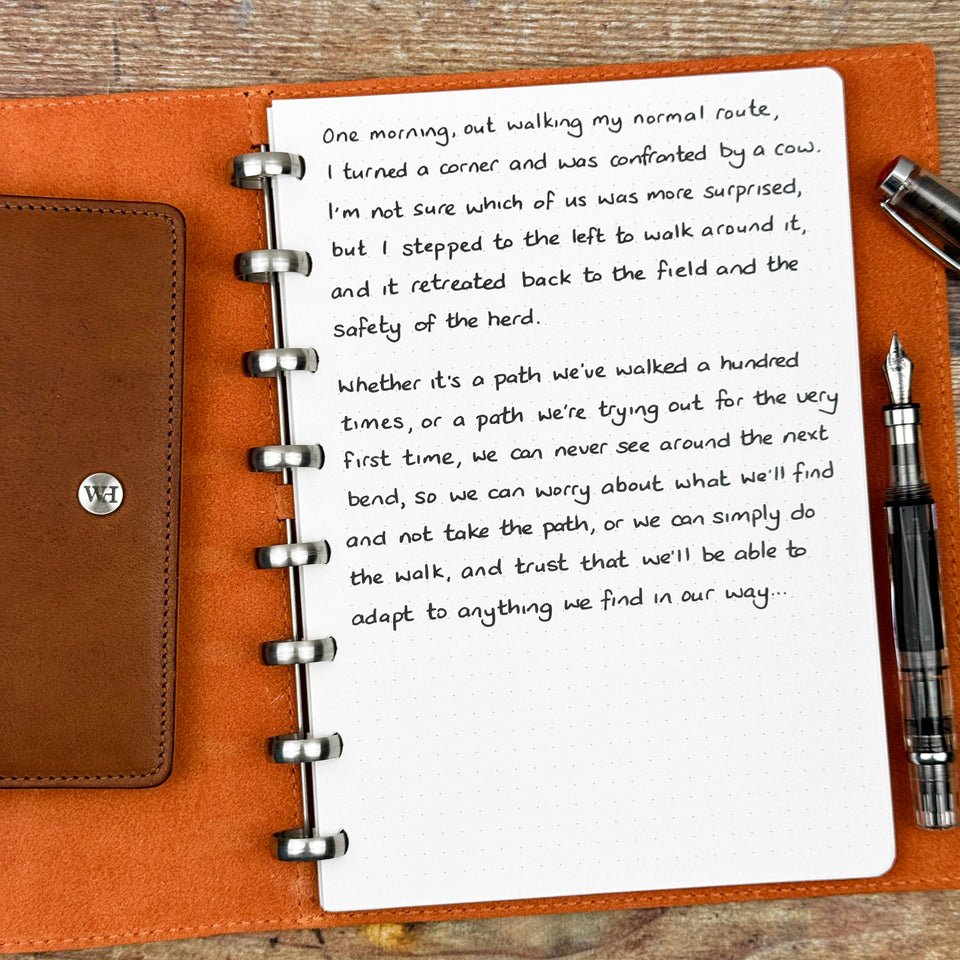 One morning, out walking my normal route,
I turned a corner and was confronted by a cow.
I'm not sure which of us was more surprised,
but I stepped to the left to walk around it,
and it retreated back to the field and the
safety of the herd.
Whether it's a path we've walked a hundred
times, or a path we're trying out for the very
first time, we can never see around the next
bend, so we can worry about what we'll find
and not take the path, or we can simply do
the walk, and trust that we'll be able to
adapt to anything we find in our way...